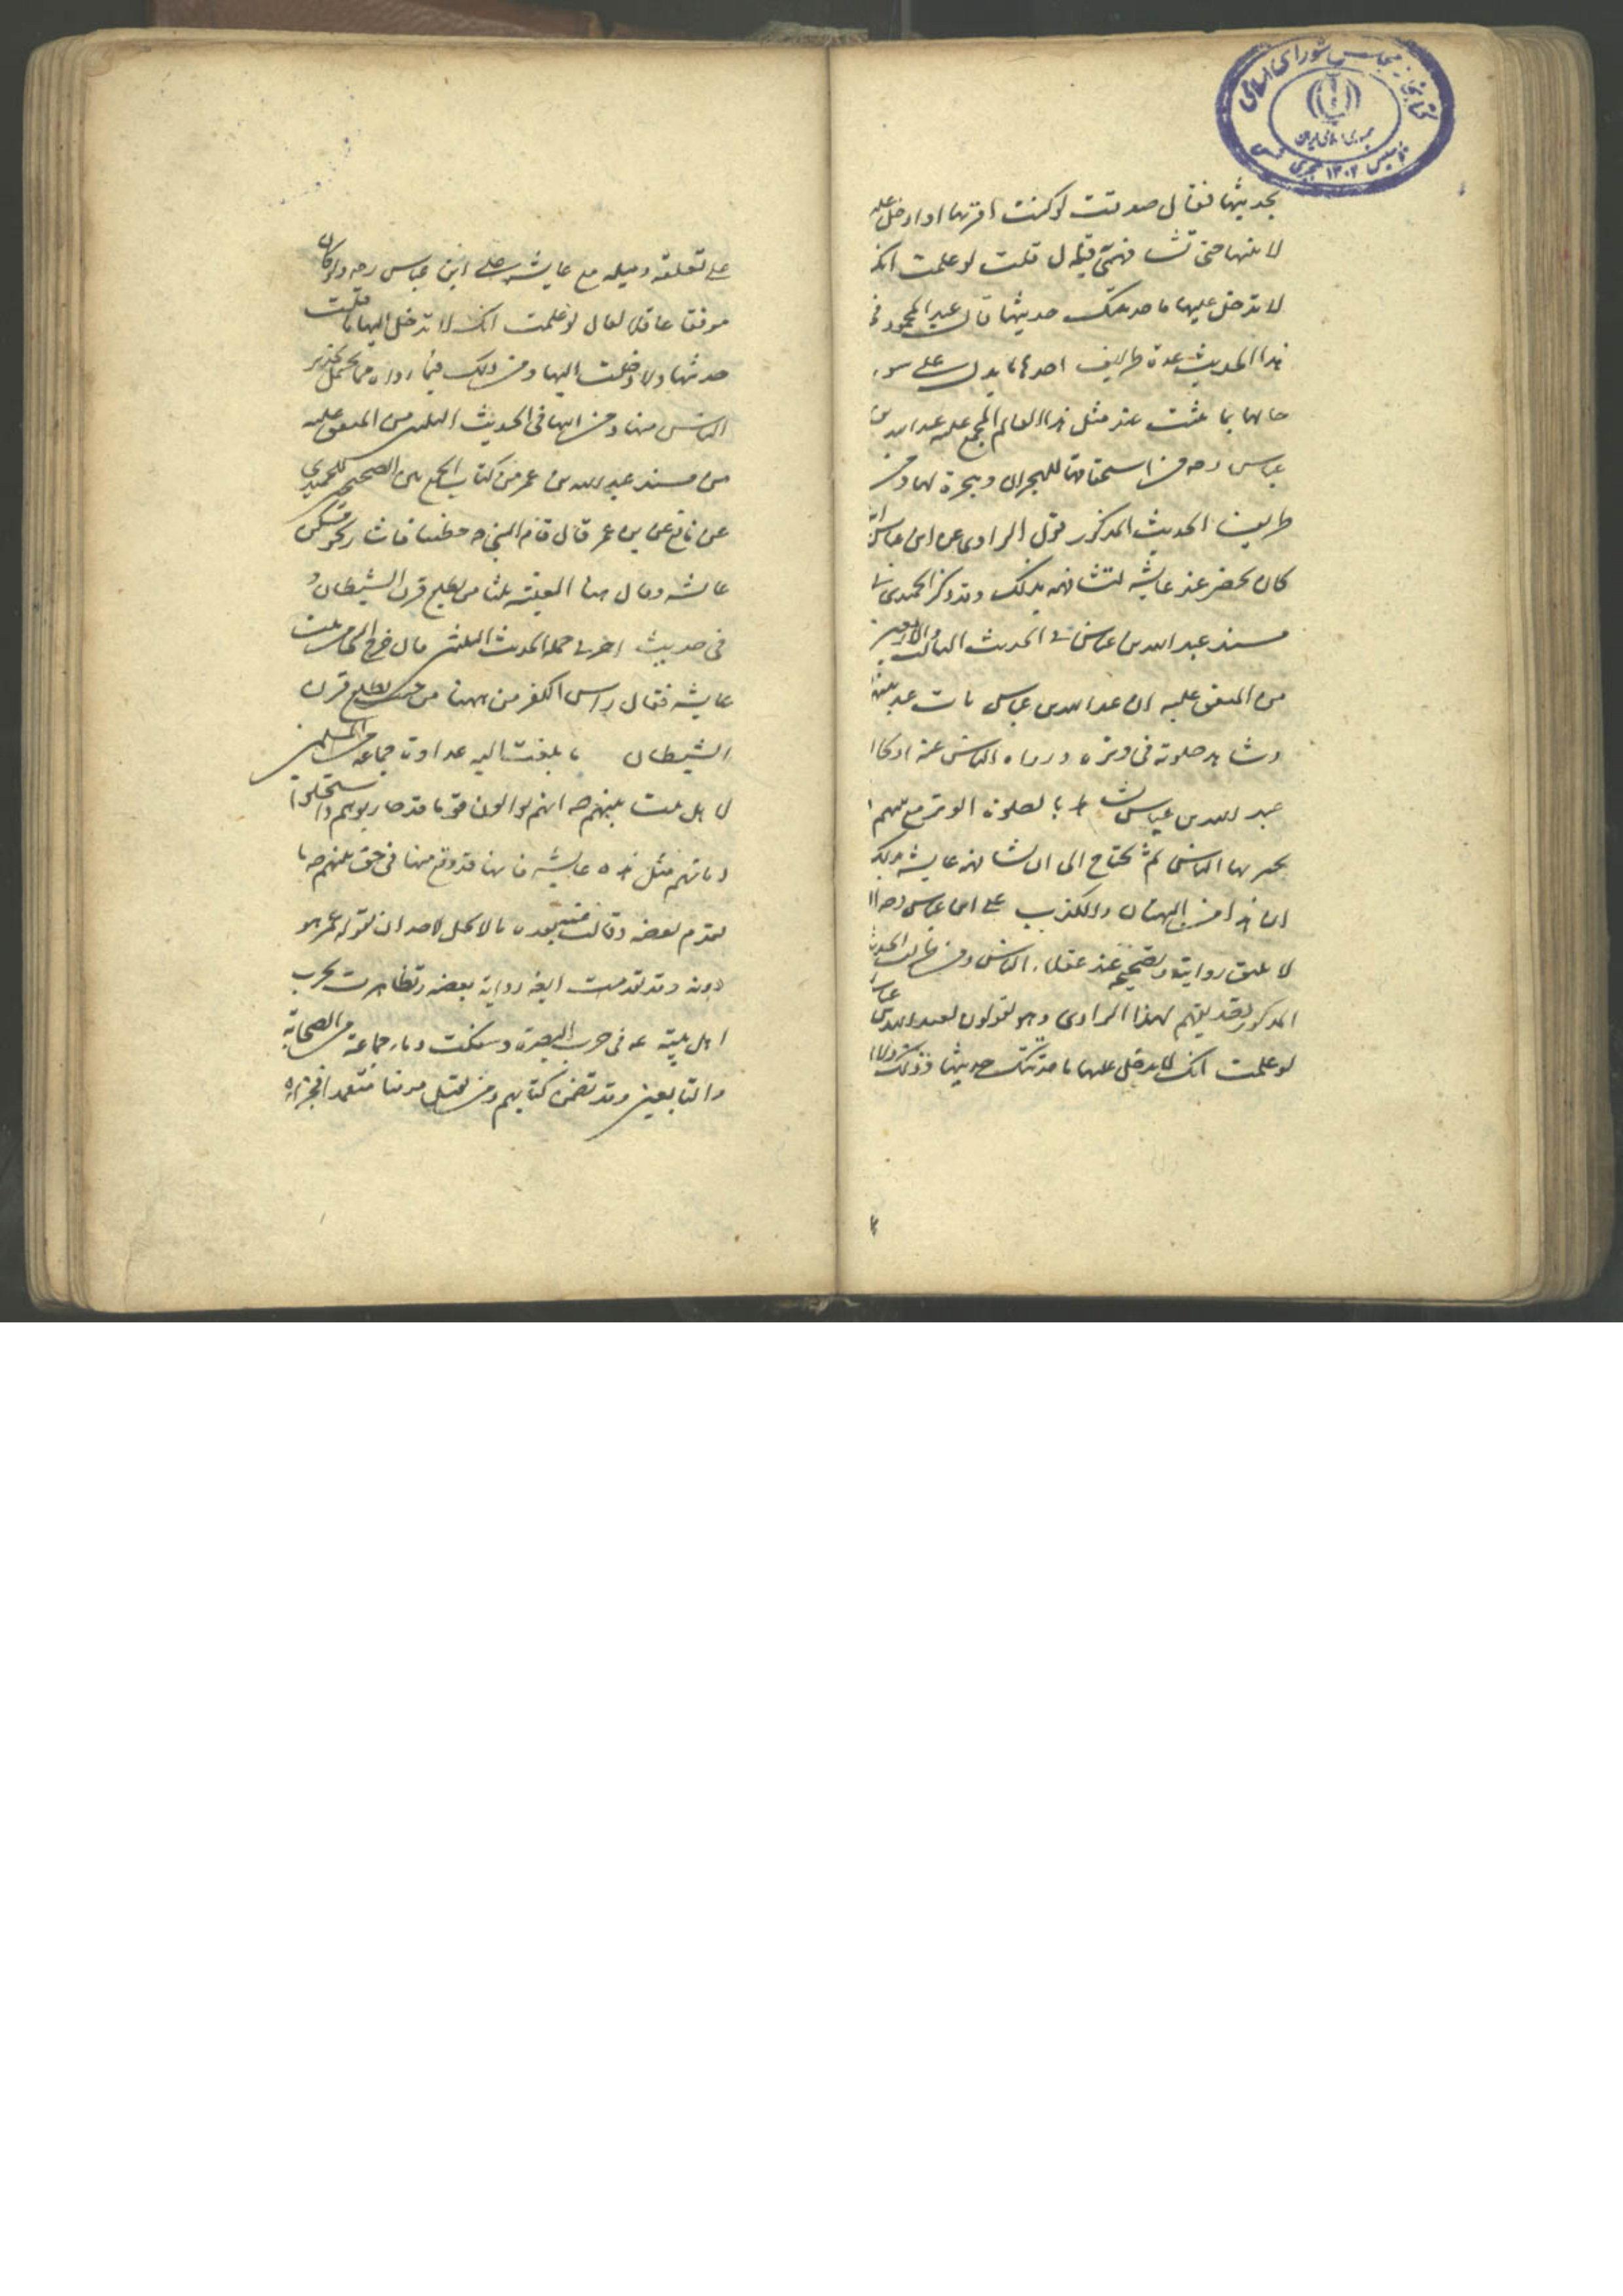 کتابخانه مجلس شورای اسلامی
جمهوری اسلامی ایران
تأسیس ۱۳۰۲ هجری شمسی
بحدیثها فقال صدقت لو کنت اقربها او ادخل علیها
لا تیتها حتی تشافهنی قال قلت لو علمت انک
لا تدخل علیها ما حدثتک حدیثها قال عبد المحمود فی
هذا الحدیث عدة طرایف احدها ما یدل علی سوء
حالها بما عند مثل هذا العالم المجمع علیه عبد الله بن
عباس ره من استحقاقها للهجران وهجره لها ومن
طرایف الحدیث المذکور قول الراوی عن ابن عباس انه
کان یحضر عند عایشه لتشافهه بذلک وقد ذکر الحمیدی فی
مسند عبد الله بن عباس فی الحدیث الثالث والاربعین
من المتفق علیه ان عبد الله بن عباس بات عند
وشاهد صلوته فی وتره ورواه الناس عنه اذ کان
عبد الله بن عباس شاهد بالصلوة الوتر مع نبیهم
بها الناس لم یحتاج الی ان تشافهه عایشه بذلک
ان هذا من البهتان والکذب علی ابن عباس ره
لا یلیق روایته وتصحیحه عند عقلاء الناس ومن طرایف الحدیث
المذکور تصدیقهم لهذا الراوی وهو یقولون لعبد الله بن عباس
لو علمت انک لا تدخل علیها ما حدثتک حدیثها
علی تعلقه ومیله مع عایشه علی ابن عباس ره ولو کان
موفقا عاقلا لقال لو علمت انک لا تدخل الیها ما قبلت
حدیثها ولا دخلت الیها ومن ذلک فیما رواه
الناس منها ومن اتباعها فی الحدیث من المتفق علیه
من مسند عبد الله بن عمر من کتاب الجمع بین الصحیحین للحمیدی
عن نافع عن ابن عمر قال قام النبی ص خطیبا فاشار نحو مسکن
عایشه وقال هنا الفتنه ثلثا من حیث یطلع قرن الشیطان و
فی حدیث اخر قال خرج النبی من بیت
عایشه فقال راس الکفر من ههنا من حیث یطلع قرن
الشیطان ما بلغت الیه عداوة جماعه من المسلمین
لاهل بیت نبیهم ص انهم یوالون قوما قد حاربوهم واستحلوا
دمائهم مثل هذه عایشه فانها قد وقع منها فی حق نبیهم ص ما
تقدم بعضه وقالت بعده ما لا یحل لاحد ان یقوله عمن هو
دونه وقد تقدمت ایضا روایة بعضه وتظاهرت بحرب
اهل بیته ع فی حرب البصرة وسفکت دماء جماعة من الصحابة
والتابعین وقد تضمن کتابهم ومن یقتل مؤمنا متعمدا فجزاؤه